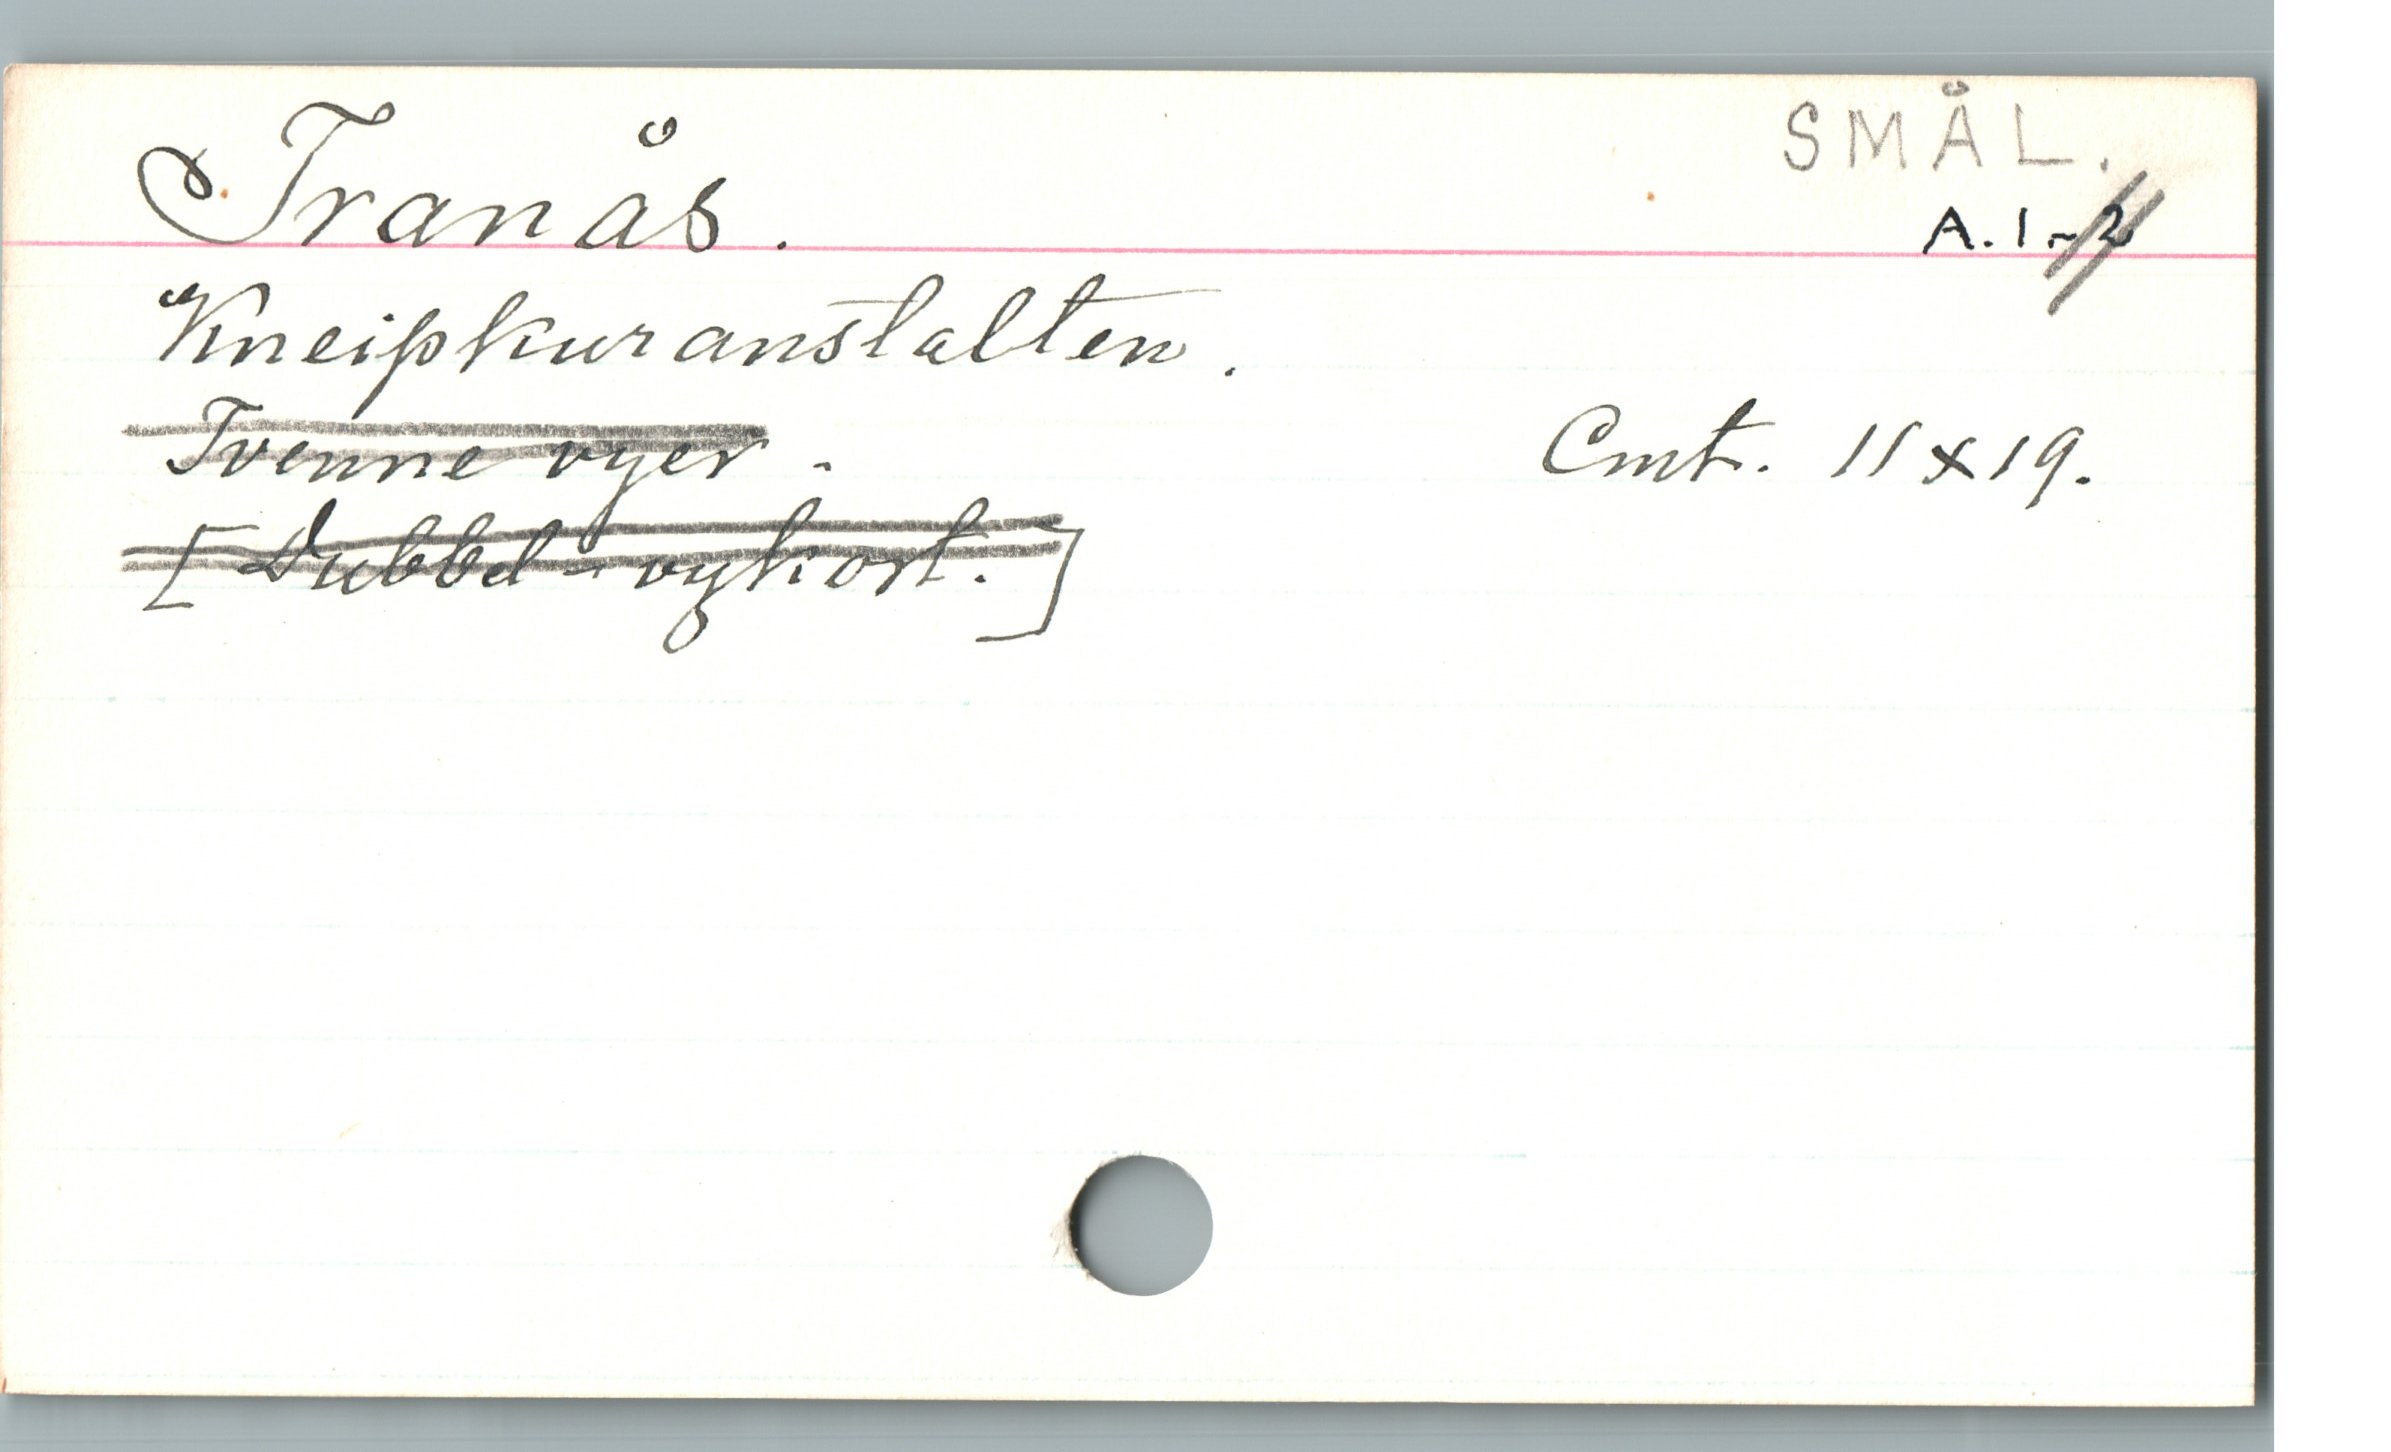 Tranås.
SMÅL.
A. 1-2
Kneipkuranstalten.
Tvenne vyer.
Cmt. 11x19.
[Dubbel-vykort.]